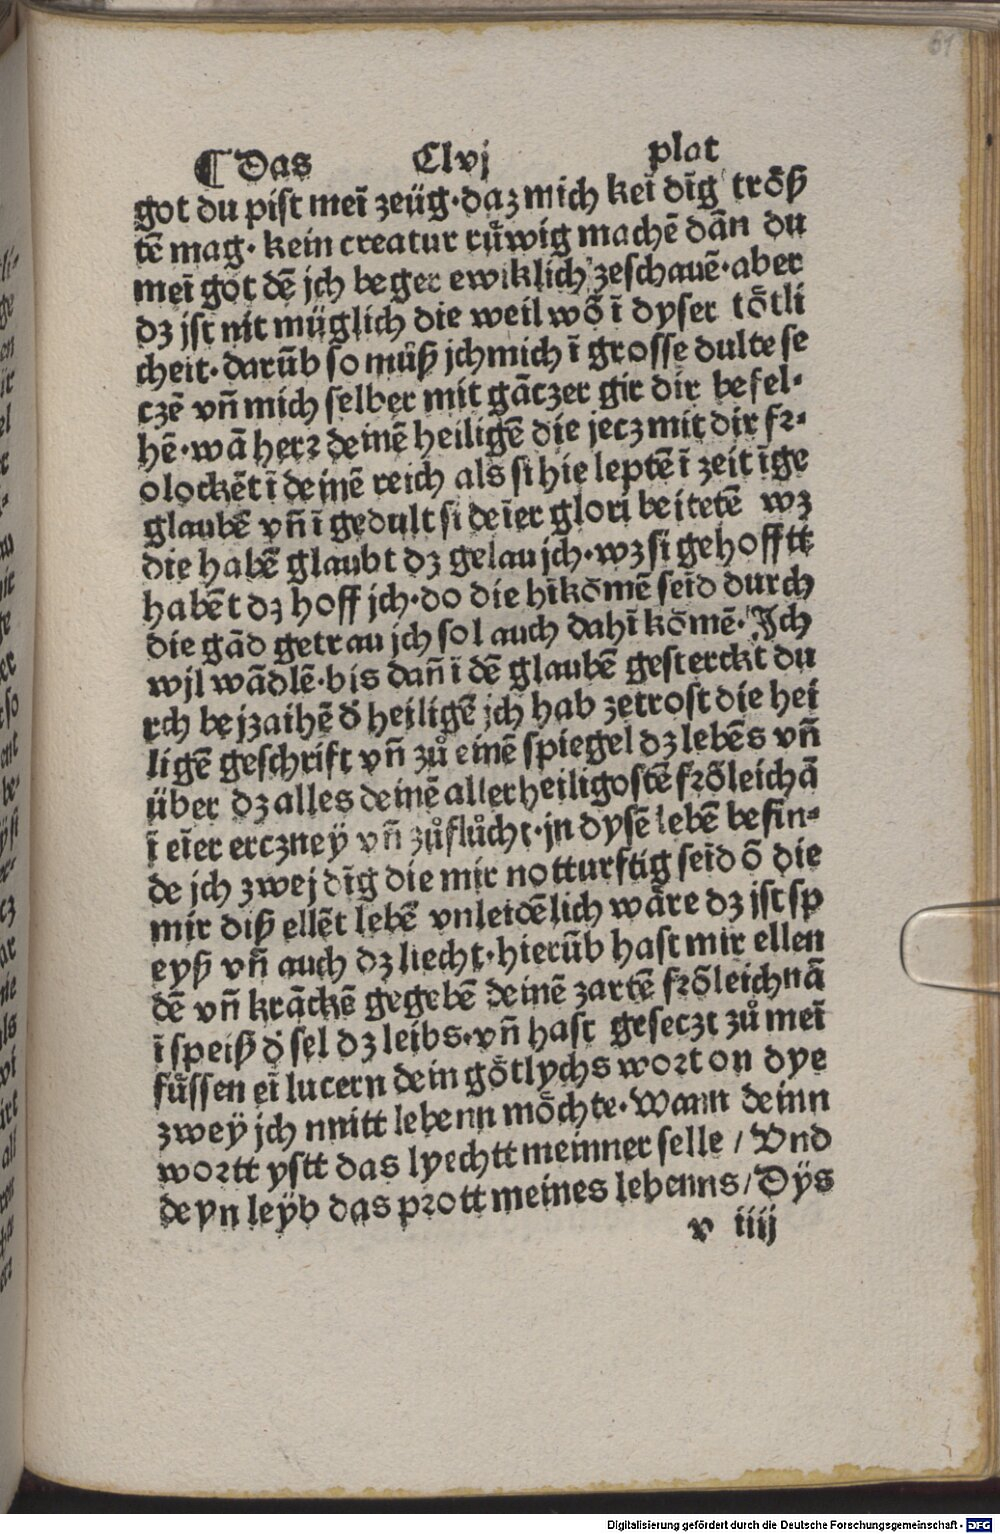 61
¶ Das Clvj plat
got du pist meī zeüg·daz mich kei dīg trȫß
tē mag· kein creatur růwig machē dān du
meī got dē jch beger ewiklich zeschauē·aber
dz jst nit müglich die weil wō ī dyser tötli
cheit·darūb so müß jch mich ī grosse dulte se
czē vn̄ mich selber mit gāczer gir dir befel-
hē·wā herꝛ deinē heiligē die jecz mit dir fꝛ-
olockēt ī deinē reich als si hie leptē ī zeit īge
glaubē vn̄ ī gedult si deīer glori beitetē wz
die habē glaubt dz gelau jch·wz si gehofftt
habēt dz hoff jch·do die hīkōmē seid durch
die gād getrau jch sol auch dahī kōmē·Jch
wjl wādlē·bis dan̄ ī dē glaubē gesterckt du
rch bejzaihē d̄ heiligē jch hab zetrost die hei
ligē geschrift vn̄ zů einē spiegel dz lebēs vn̄
über dz alles deinē allerheiligostē frōleichā
ī eīer erczneÿ vn̄ zůflůcht·jn dysē lebē befin-
de jch zwej dīg die mir notturftig seīd ō die
mir diß ellēt lebē vnleidēlich wäre dz jst sp
eyß vn̄ auch dz liecht·hierūb hast mir ellen
dē vn̄ krāckē gegebē deinē zartē fꝛōleichnā
ī speiß d̄ sel dz leibs·vn̄ hast geseczt zů meī
fůssen eī lucern dein götlychs woꝛt on dye
zweÿ jch nnitt lebenn möchte·Wann deinn
woꝛtt ystt das lyechtt meinner selle / Vnd
deyn leÿb das pꝛott meines lebenns/Dÿs
v iiij
Digitalisierung gefördert durch die Deutsche Forschungsgemeinschaft - DFG